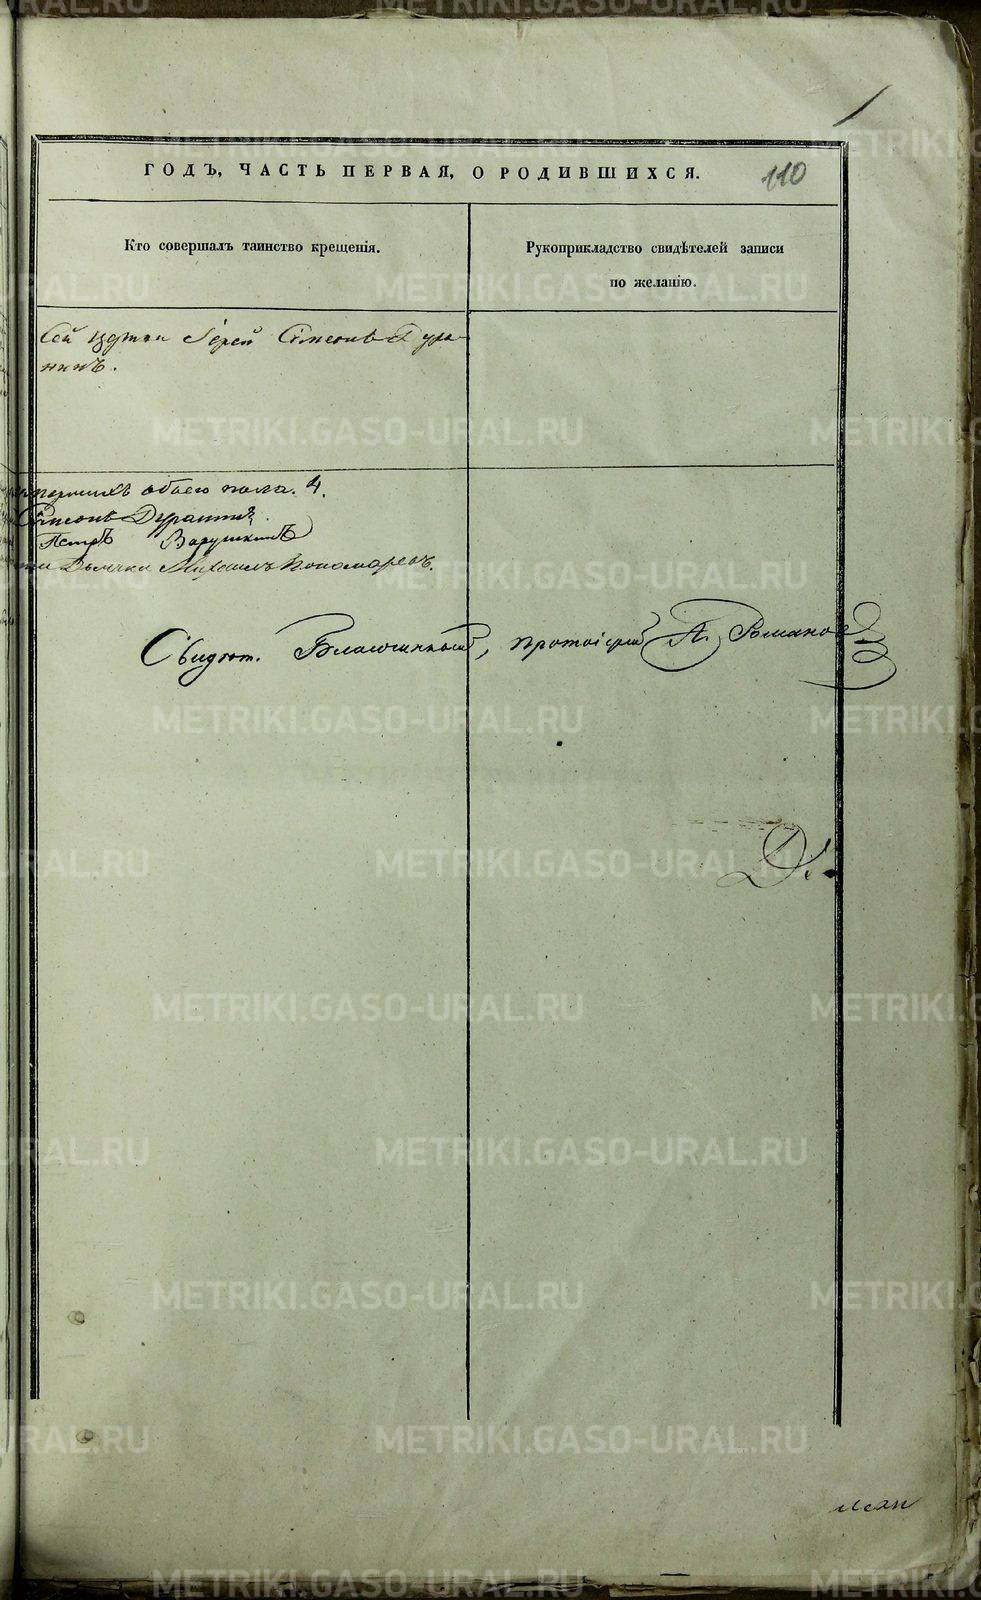 110
ГОДЪ, ЧАСТЬ ПЕРВАЯ, О РОДИВШИХСЯ.
Кто совершалъ таинство крещенія.
Рукоприкладство свидѣтелей записи
по желанію.
Іерей Сѵмеонъ Дура-
нинъ.
обоего пола. 4.
Сѵмеонъ Дуранинъ.
Петръ Варушкинъ
Дьячка Михаилъ Пономаревъ.
Свидѣт. Благочинный, протоіерей А. Романовъ
METRIKI.GASO-URAL.RU